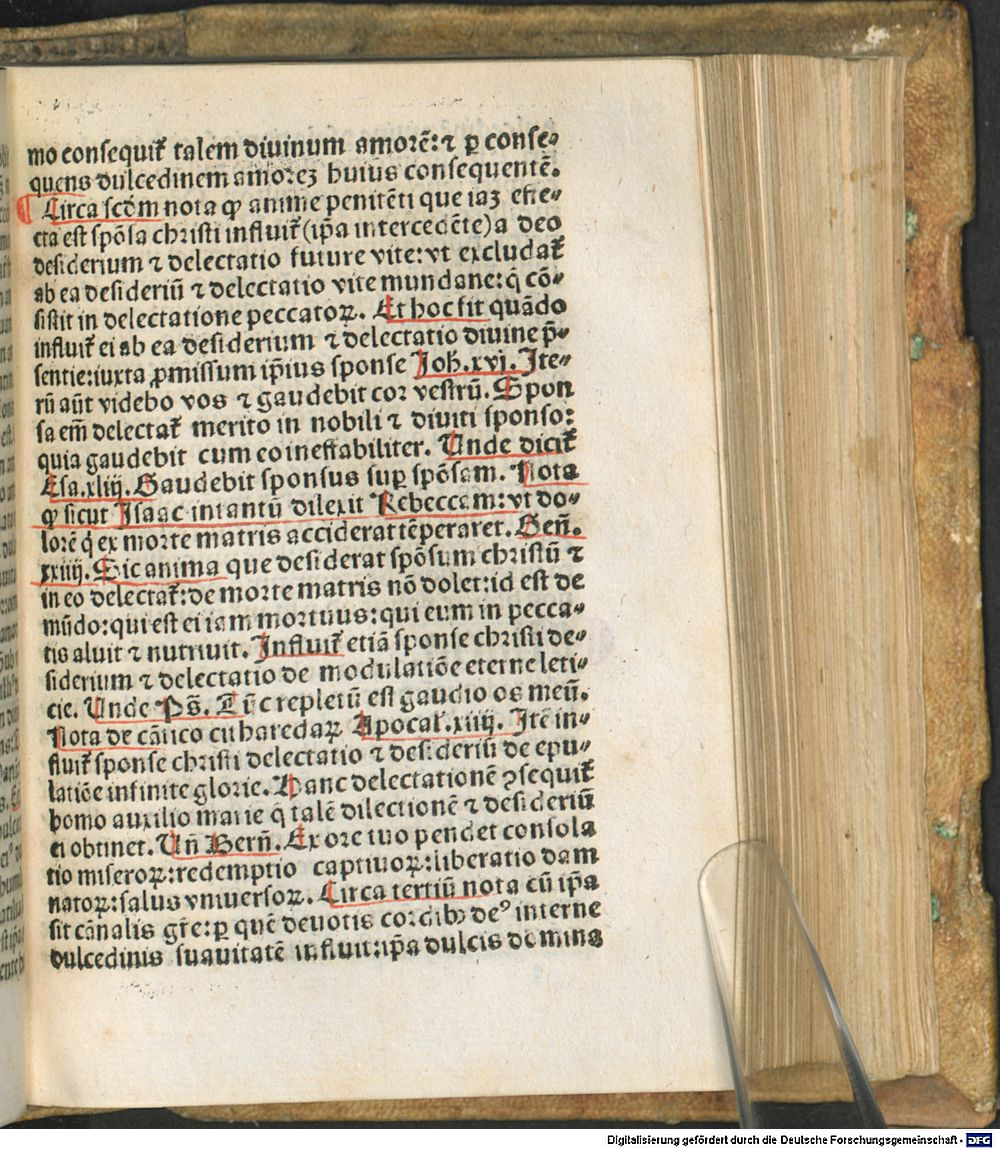 mo consequit᷑ talem diuinum amorē: ⁊ ꝑ conse⸗
quens dulcedinem amoreꝫ huius consequentē.
¶ Circa scōm nota ꝙ anime penitēti que iaꝫ effe⸗
cta est spōsa christi influit᷑ (ip̄a intercedēte) a deo
desiderium ⁊ delectatio future vite: vt excludat᷑
ab ea desideriū ⁊ delectatio vite mundane: q̄ cō⸗
sistit in delectatione peccatoꝝ. Et hoc fit quādo
influit᷑ ei ab ea desiderium ⁊ delectatio diuine p̄⸗
sentie: iuxta ꝓmissum ip̄ius sponse Joh̄. xvj. Ite⸗
rū aūt videbo vos ⁊ gaudebit cor vestrū. Spon
sa em̄ delectat᷑ merito in nobili ⁊ diuiti sponso:
quia gaudebit cum eo ineffabiliter. Unde dicit᷑
Esa. xliij. Gaudebit sponsus sup̱ spōsam. Nota
ꝙ sicut Isaac intantū dilexit Rebeccam: vt do⸗
lorē q̇ ex morte matris acciderat tēperaret. Geñ.
xxiiij. Sic anima que desiderat spōsum christū ⁊
in eo delectat᷑: de morte matris nō dolet: id est de
mūdo: qui est ei iam mortuus: qui eum in pecca⸗
tis aluit ⁊ nutriuit. Influit᷑ etiā sponse christi de⸗
siderium ⁊ delectatio de modulatiōe eterne leti⸗
cie. Unde Ps̄. Tūc repletū est gaudio os meū.
Nota de cātico citharedaꝝ Apocal̓. xiiij. Itē in⸗
fluit᷑ sponse christi delectatio ⁊ desideriū de epu⸗
latiōe infinite glorie. Hanc delectationē ꝯsequit᷑
homo auxilio marie q̄ talē dilectionē ⁊ desideriū
ei obtinet. Uñ Berñ. Ex ore tuo pendet consola
tio miseroꝝ: redemptio captiuoꝝ: liberatio dam
natoꝝ: salus vniuersoꝝ. Circa tertiū nota cū ip̄a
sit cānalis gr̄e: ꝑ quē deuotis cordibꝫ deꝰ interne
dulcedinis suauitatē influit: ip̄a dulcis domina